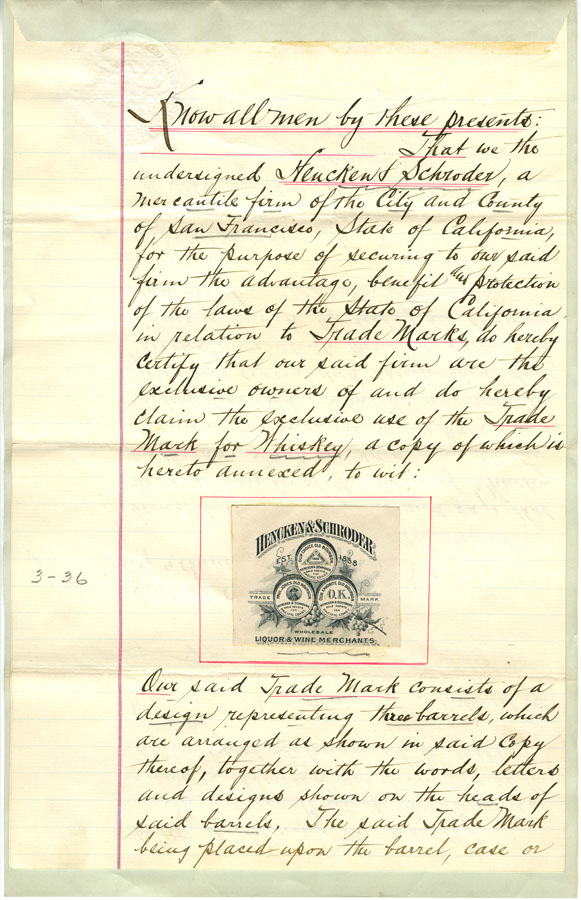 Know all men by these presents:
That we the
undersigned Hencken & Schroder, a
mercantile firm of the City and County
of San Francisco, State of California,
for the purpose of securing to our said
firm the advantage, benefit and protection
of the laws of the State of California
in relation to Trade Marks, do hereby
certify that our said firm are the
exclusive owners of and do hereby
claim the exclusive use of the Trade
Mark for Whiskey, a copy of which is
hereto annexed, to wit:
HENCKEN & SCHRODER
EST. 1858
O.K.
TRADE MARK
WHOLESALE
LIQUOR & WINE MERCHANTS
3-36
Our said Trade Mark consists of a
design representing three barrels, which
are arranged as shown in said Copy
thereof, together with the words, letters
and designs shown on the heads of
said barrels. The said Trade Mark
being placed upon the barrel, case or